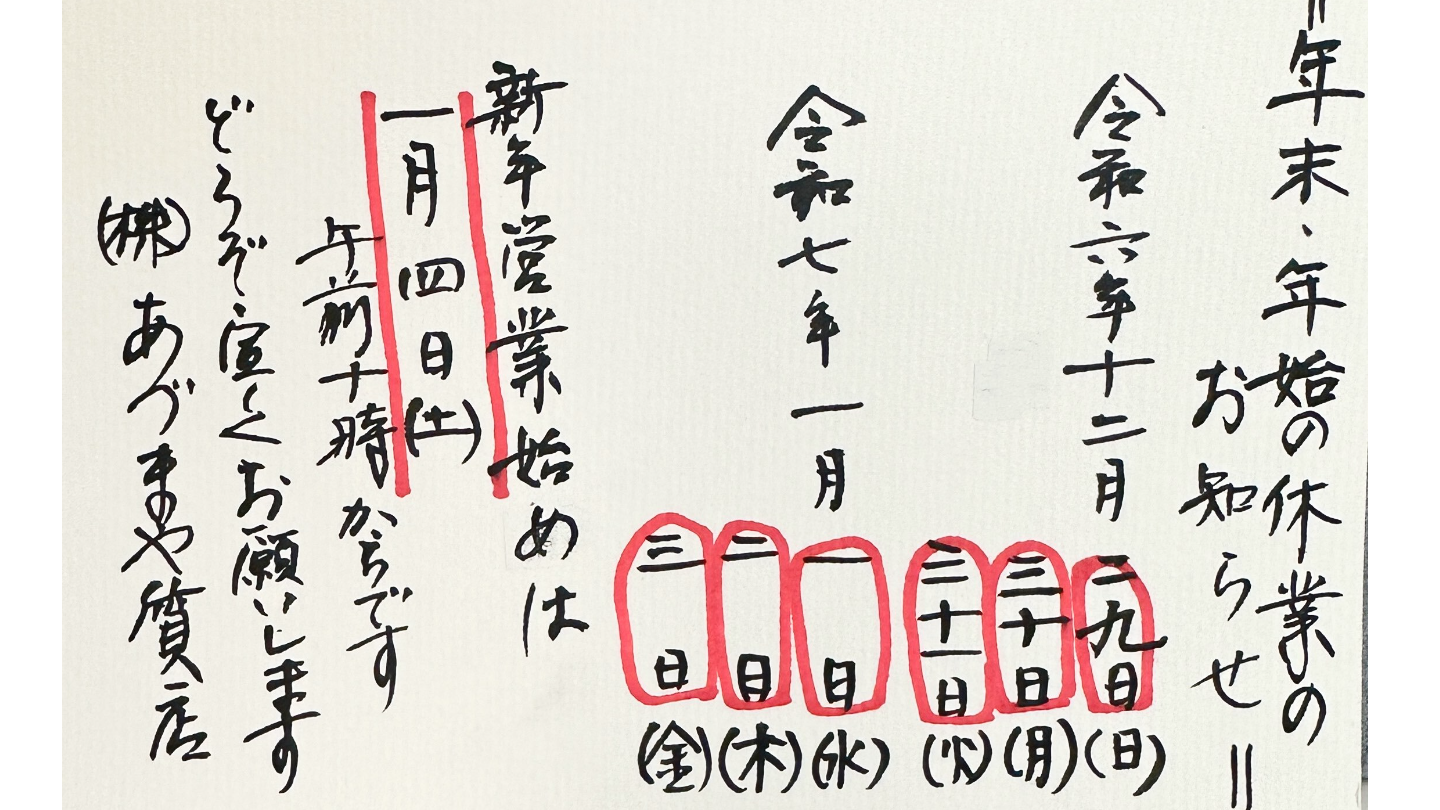 =年末、年始の休業の
お知らせ=
令和六年十二月
二九日(日)
三十日(月)
三十一日(火)
令和七年一月
一日(水)
二日(木)
三日(金)
新年営業始めは
一月四日(土)
午前十時からです
どうぞ宜しくお願いします
㈱あづまや質店